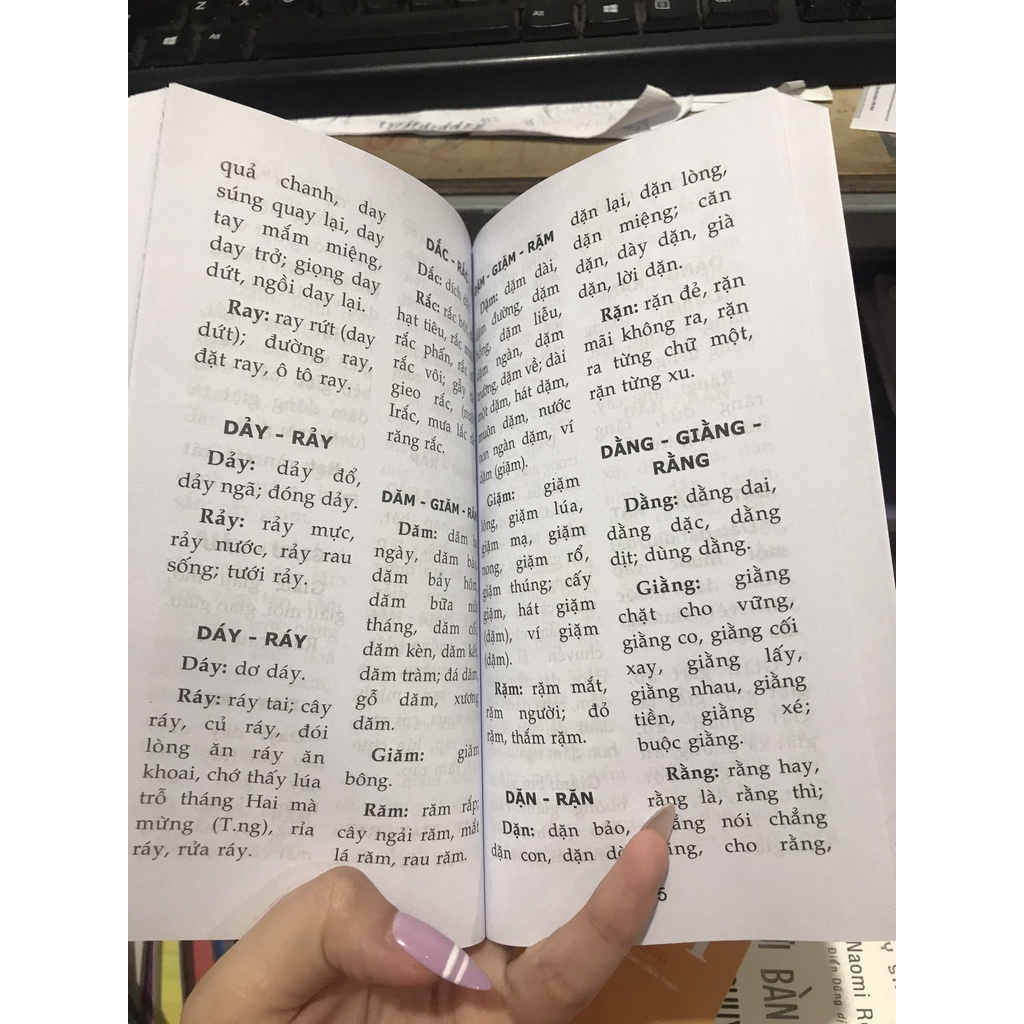 quả chanh, day
súng quay lại, day
tay mắm miệng,
day trở; giọng day
dứt, ngồi day lại.
Ray: ray rứt (day
dứt); đường ray,
đặt ray, ô tô ray.
DẢY - RẢY
Dảy: dảy đổ,
dảy ngã; đóng dảy.
Rảy: rảy mực,
rảy nước, rảy rau
sống; tưới rảy.
DÁY - RÁY
Dáy: dơ dáy.
Ráy: ráy tai; cây
ráy, củ ráy, đói
lòng ăn ráy ăn
khoai, chớ thấy lúa
trỗ tháng Hai mà
mừng (T.ng), rỉa
ráy, rửa ráy.
DẮC - RẮC
Dắc: dích
Rắc: rắc
hạt tiêu, rắc
rắc phấn, rắc
rắc vôi; gầy
gieo rắc,
Irắc, mưa lắc
răng rắc.
DĂM - GIĂM - RĂM
Dăm: dăm
ngày, dăm
dăm bảy hôm
dăm bữa
tháng, dăm cối
dăm kèn, dăm kết
dăm trầm; đá dăm
gỗ dăm, xương
dăm.
Giăm: giăm
bông.
Răm: răm rắp;
cây ngải răm, mắt
lá răm, rau răm.
DẶM - GIẶM - RẶM
Dặm: dặm dài,
dặm đường, dặm
dặm liễu,
dặm ngàn, dặm
trường, dặm về; dài
một dặm, hát dặm,
muôn dặm, nước
non ngàn dặm, ví
dặm (giặm).
Giặm: giặm
giặm lúa,
giặm mạ, giặm
giặm rổ,
giặm thúng; cấy
giặm, hát giặm
(dặm), ví giặm
(dặm).
Rặm: rặm mắt,
rặm người; đỏ
rặm, thắm rặm.
DẶN - RẶN
Dặn: dặn bảo,
dặn con, dặn
dặn lại, dặn lòng,
dặn miệng; căn
dặn, dày dặn, già
dặn, lời dặn.
Rặn: rặn đẻ, rặn
mãi không ra, rặn
ra từng chữ một,
rặn từng xu.
DẰNG - GIẰNG -
RẰNG
Dằng: dằng dai,
dằng dặc, dằng
dịt; dùng dằng.
Giằng: giằng
chặt cho vững,
giằng co, giằng cối
xay, giằng lấy,
giằng nhau, giằng
tiền, giằng xé;
buộc giằng.
Rằng: rằng hay,
rằng là, rằng thì;
nói chẳng
cho rằng,
5
BÀN
Naomi